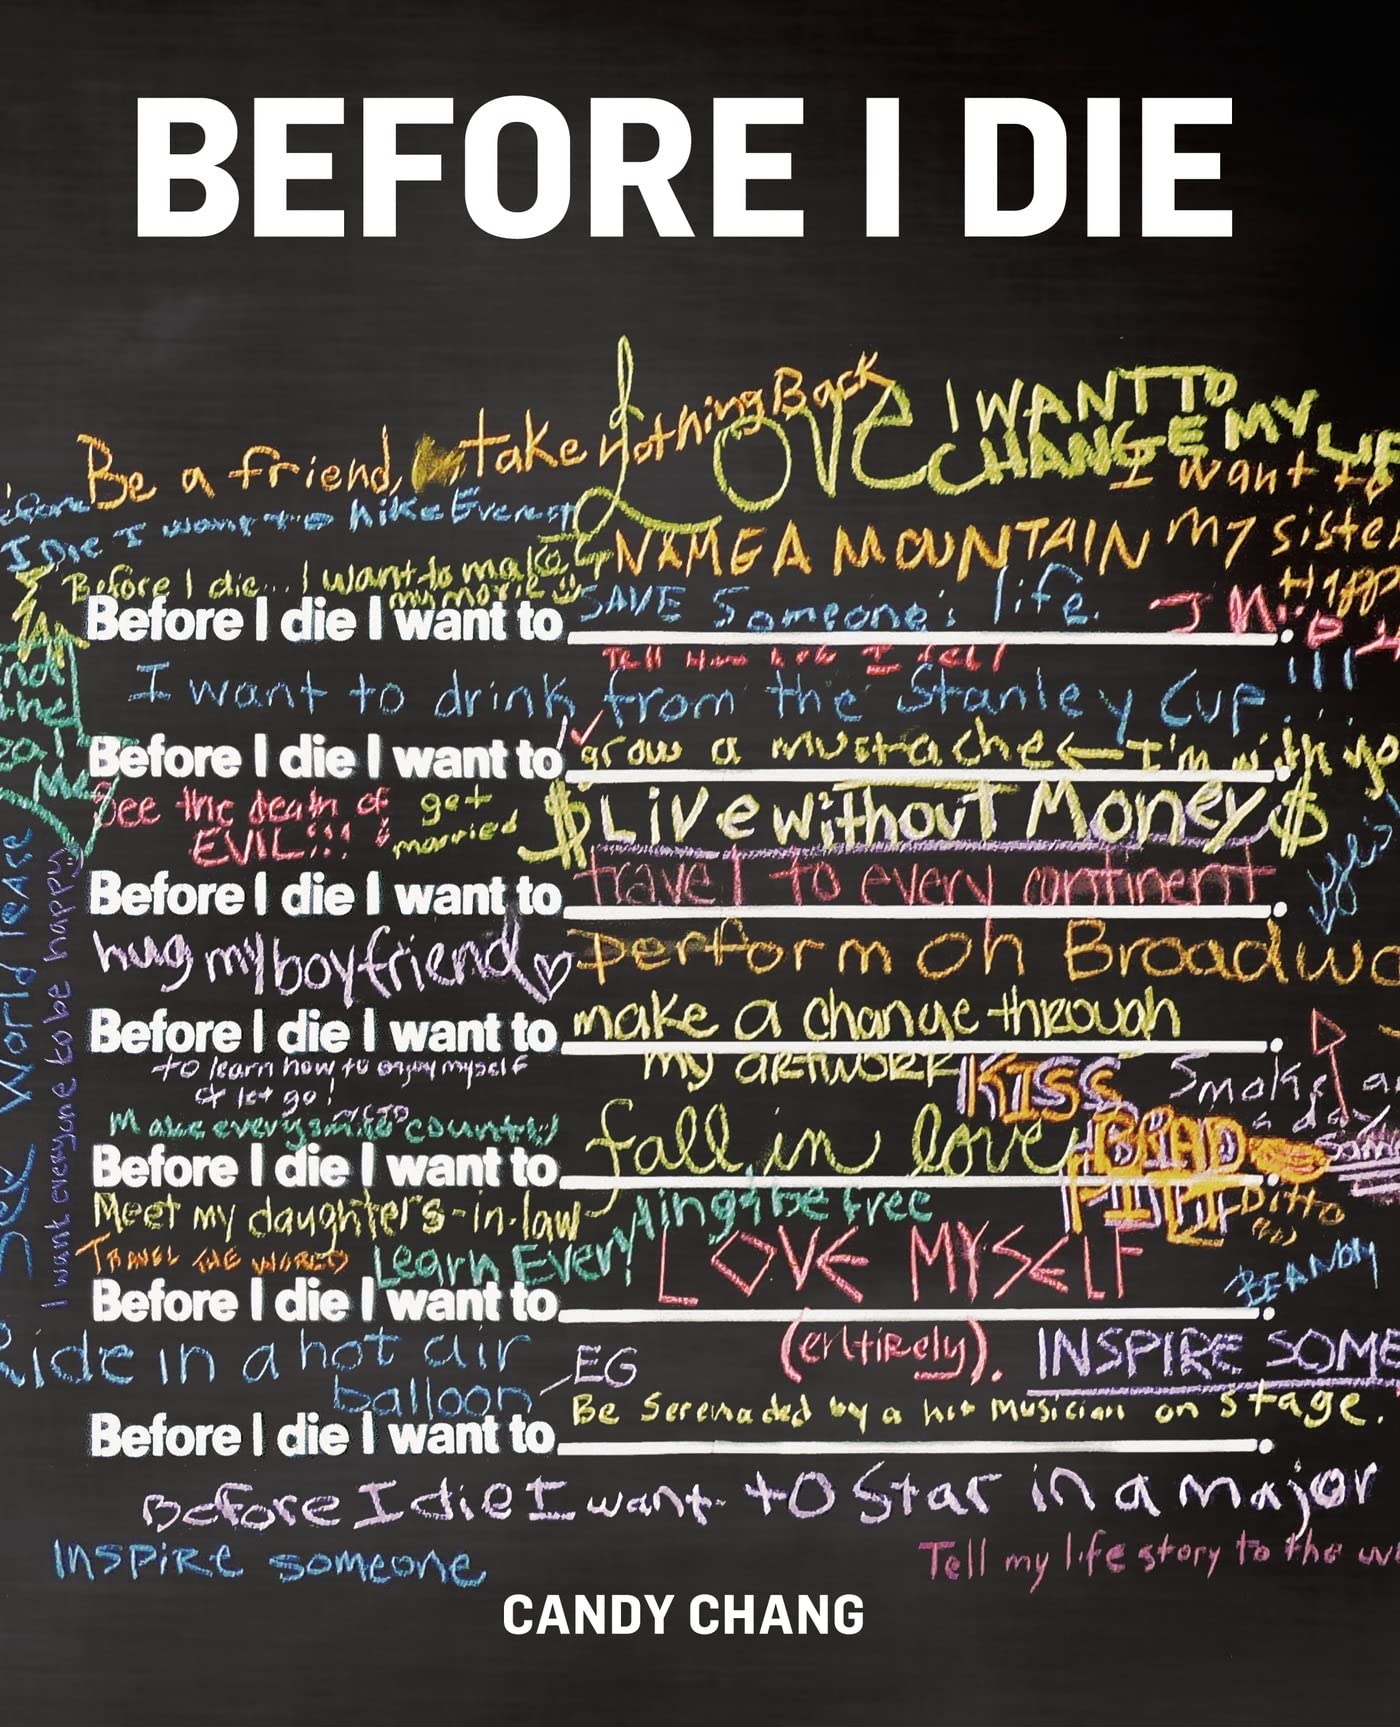 BEFORE I DIE
Be a friend, take nothing Back
LOVE
I WANT TO
CHANGE MY
I want to
I Die I want to hike Everest
NAME A MOUNTAIN
My sister
Before I die... I want to make
my movie
Before I die I want to SAVE Someone's life.
Tell I feel
I want to drink from the Stanley Cup
Before I die I want to grow a mustache ← I'm with yo
See the death of
EVIL!!!
get
married
$ Live without Money $
Before I die I want to travel to every continent.
hug my boyfriend
perform on Broadwa
Before I die I want to make a change through.
my artwork
to learn how to enjoy myself
& let go!
KISS
BRAD
PITT
Smoke
Make every count
Before I die I want to fall in love.
Meet my daughter's-in-law
Ditto
Travel the WORLD
Learn Everything & be free
Before I die I want to LOVE MYSELF.
(entirely).
Ride in a hot air
balloon
EG
INSPIRE SOME
Before I die I want to Be Serenaded by a hot musician on stage.
Before I die I want to star in a major
Inspire someone
Tell my life story to the
See World Peace
I want everyone to be happy
CANDY CHANG